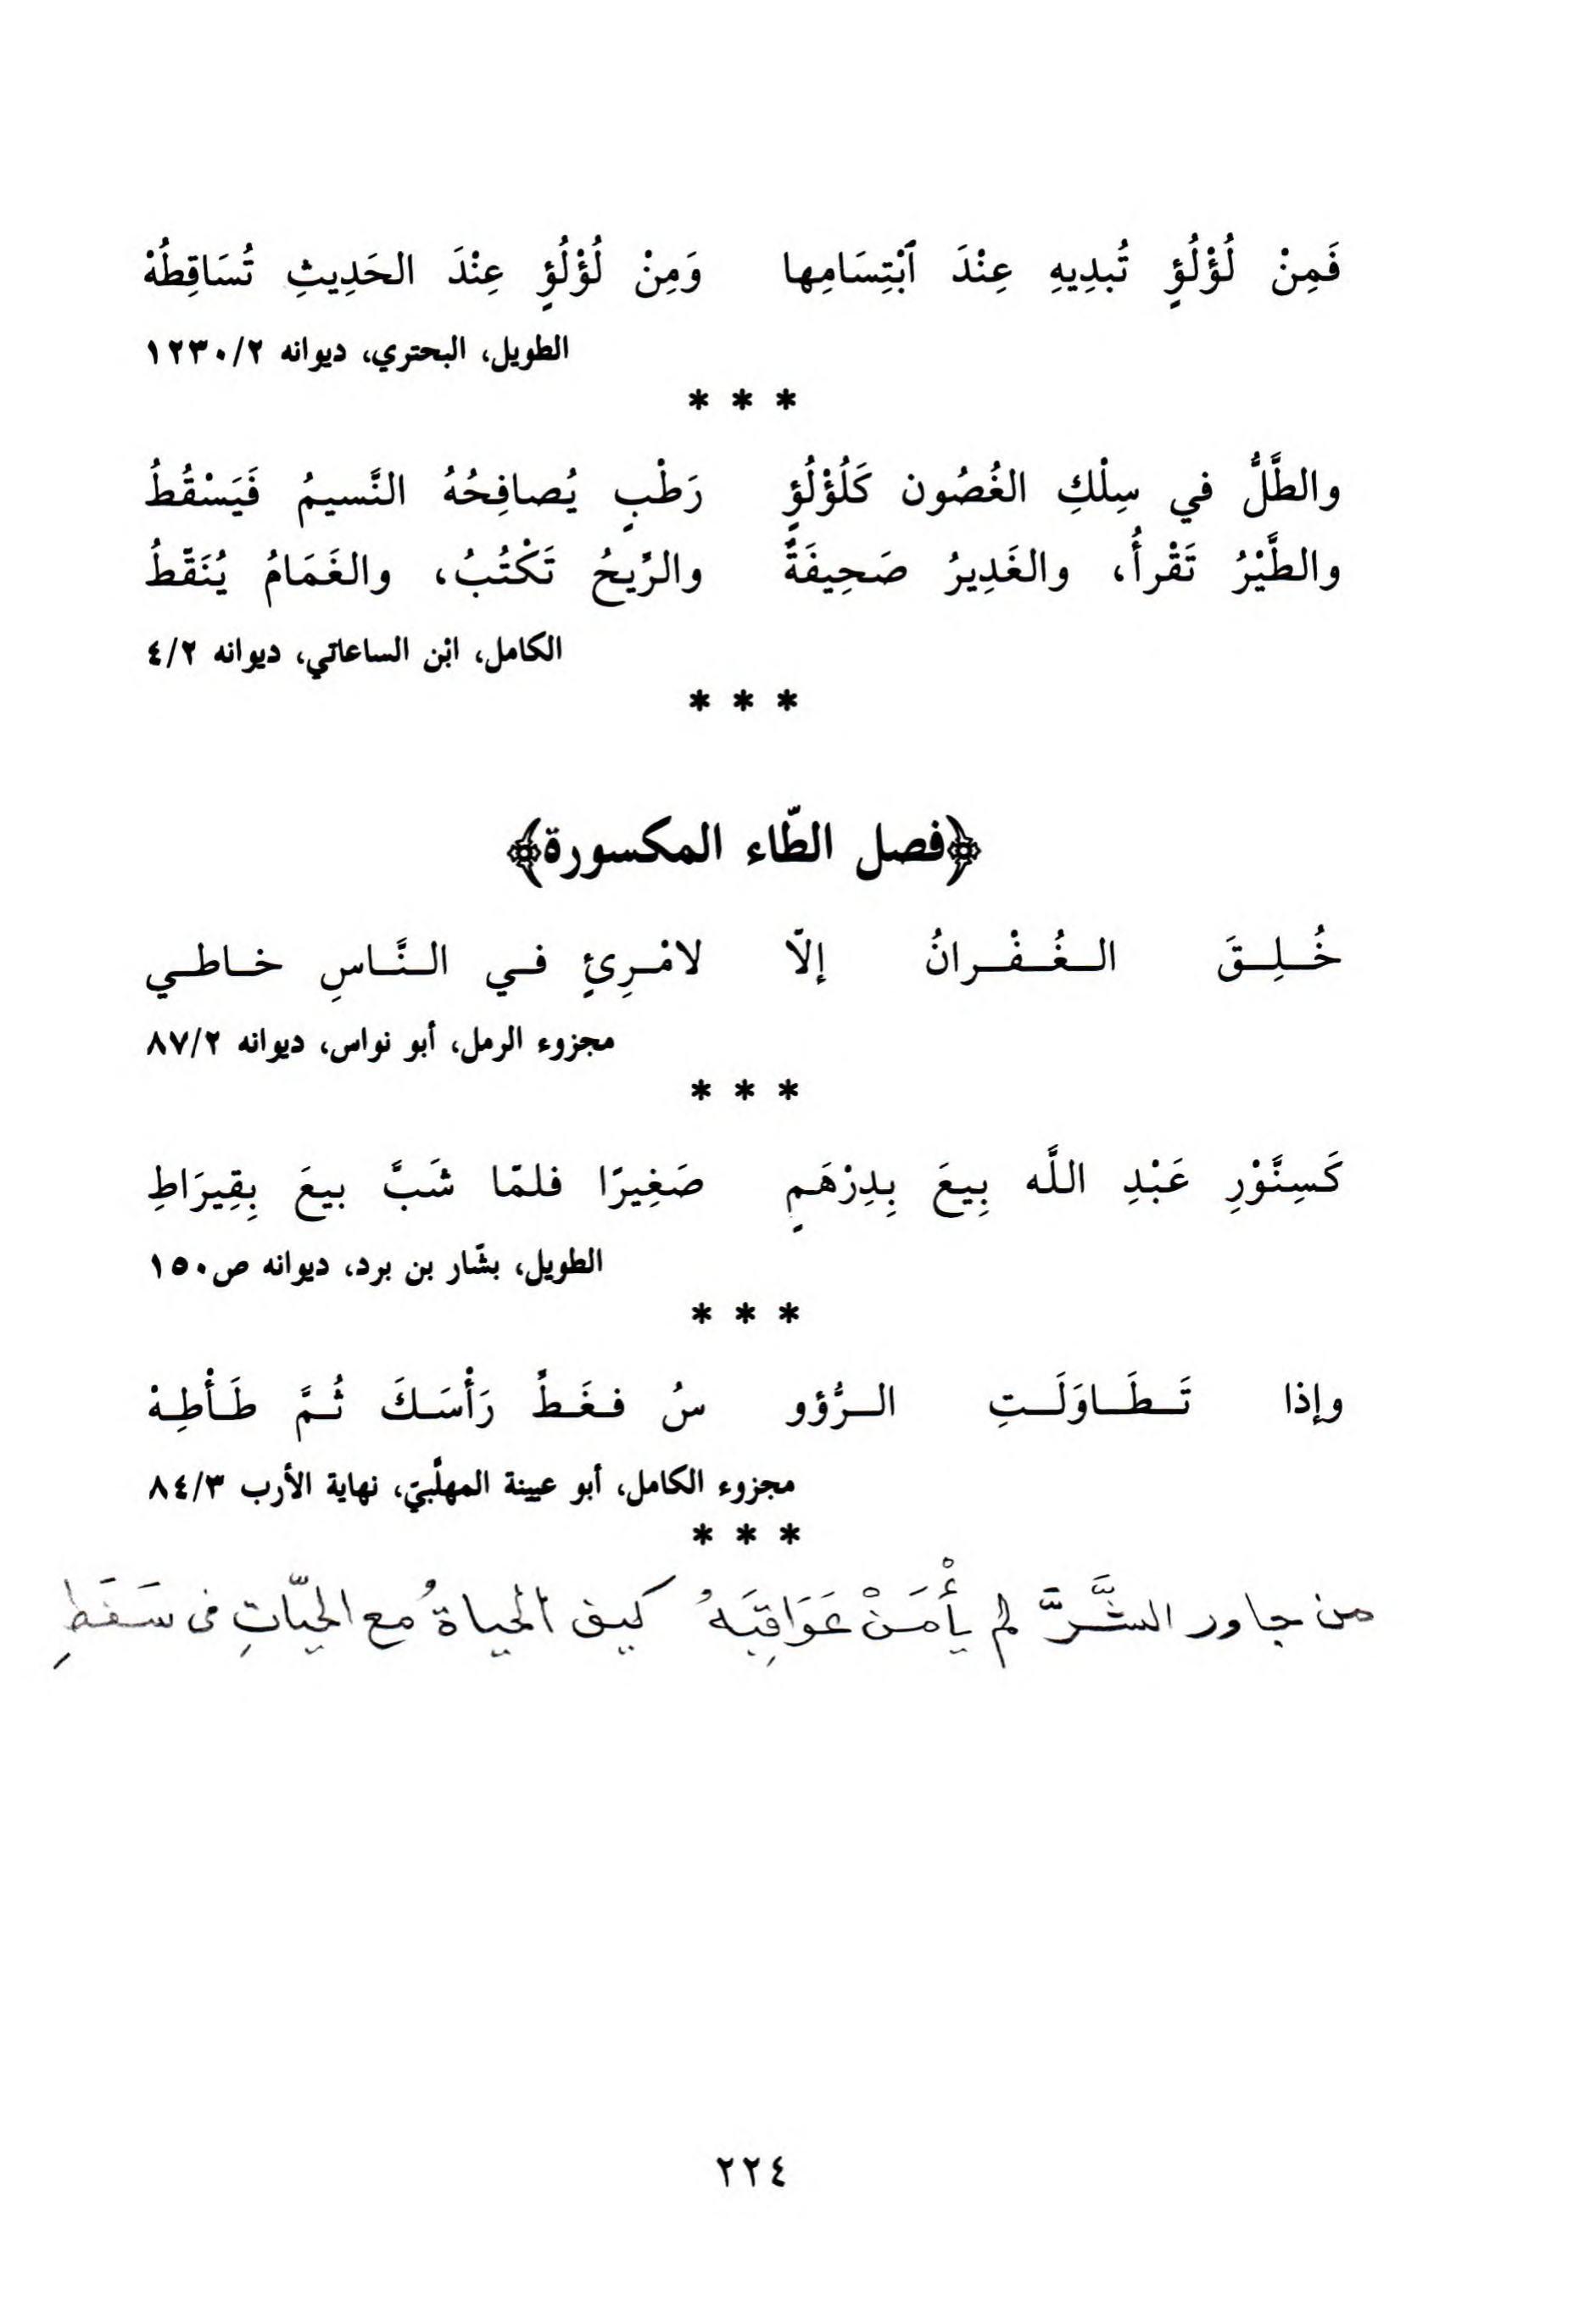 فَمِنْ لُؤْلُؤٍ تُبدِيهِ عِنْدَ ٱبْتِسَامِها وَمِنْ لُؤْلُؤٍ عِنْدَ الحَدِيثِ تُسَاقِطُهْ
الطويل، البحتري، ديوانه ١٢٣٠/٢
* * *
والطَّلُّ في سِلْكِ الغُصُون كَلُؤْلُؤٍ رَطْبٍ يُصافِحُهُ النَّسيمُ فَيَسْقُطُ
والطَّيْرُ تَقْرأُ، والغَدِيرُ صَحِيفَةٌ والرِّيحُ تَكْتُبُ، والغَمَامُ يُنَقّطُ
الكامل، ابْن الساعاتي، ديوانه ٤/٢
* * *
﴿فصل الطّاء المكسورة﴾
خُـلِـقَ الـغُـفْـرانُ إلّا لامْـرِئٍ فـي الـنَّـاسِ خـاطـي
مجزوء الرمل، أبو نواس، ديوانه ٨٧/٢
* * *
كَسِنَّوْرِ عَبْدِ اللَّه بِيعَ بِدِرْهَمٍ صَغِيرًا فلمّا شَبَّ بيعَ بِقِيرَاطِ
الطويل، بشّار بن برد، ديوانه ص١٥٠
* * *
وإذا تَـطَـاوَلَـتِ الـرُّؤو سُ فـغَـطِّ رَأْسَـكَ ثُـمَّ طَـأْطِـهْ
مجزوء الكامل، أبو عيينة المهلَّبيّ، نهاية الأرب ٨٤/٣
* * *
من جاور الشَّرَّ لم يأْمَنْ عَوَاقِبَهُ كيف الحياةُ مع الحيّاتِ فى سَفَطِ
٢٢٤